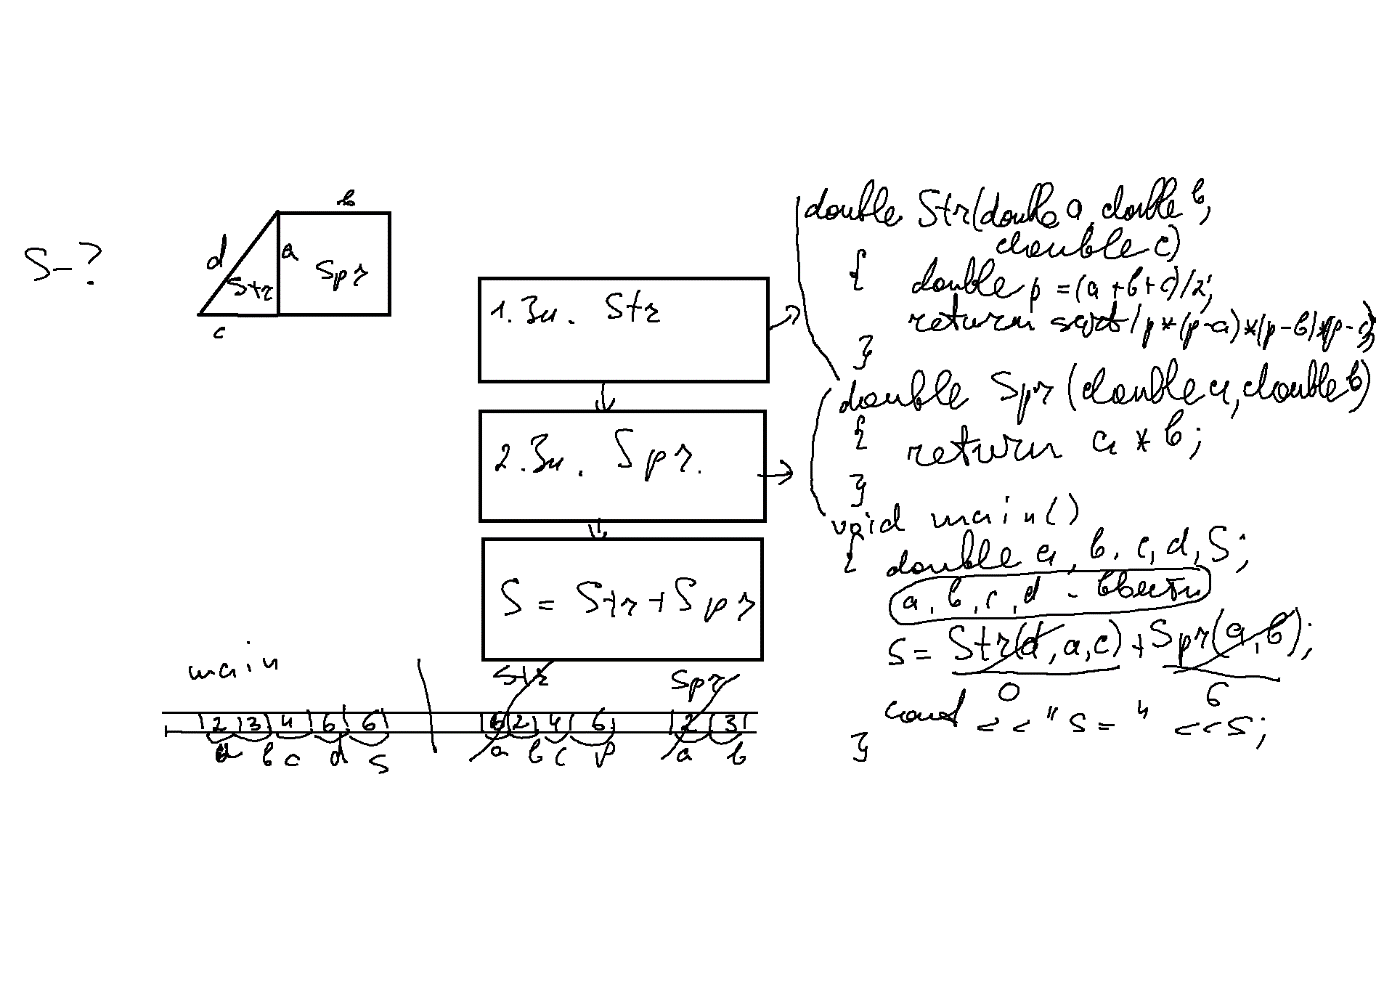 S-?
b
d
a
Str
Spr
c
1. Зн. Str
2. Зн. Spr.
S = Str + Spr
double Str(double a, double b,
double c)
{
double p = (a+b+c)/2;
return sqrt(p*(p-a)*(p-b)*(p-c)
}
double Spr (double a, double b)
{
return a * b;
}
void main()
{ double a, b, c, d, S;
a, b, c, d - ввести
S = Str(d, a, c) + Spr(a, b);
0 6
cout << "S = " << S;
}
main
Str
Spr
2 3 4 6 6
6 2 4 6
2 3
a b c d S
a b c p
a b